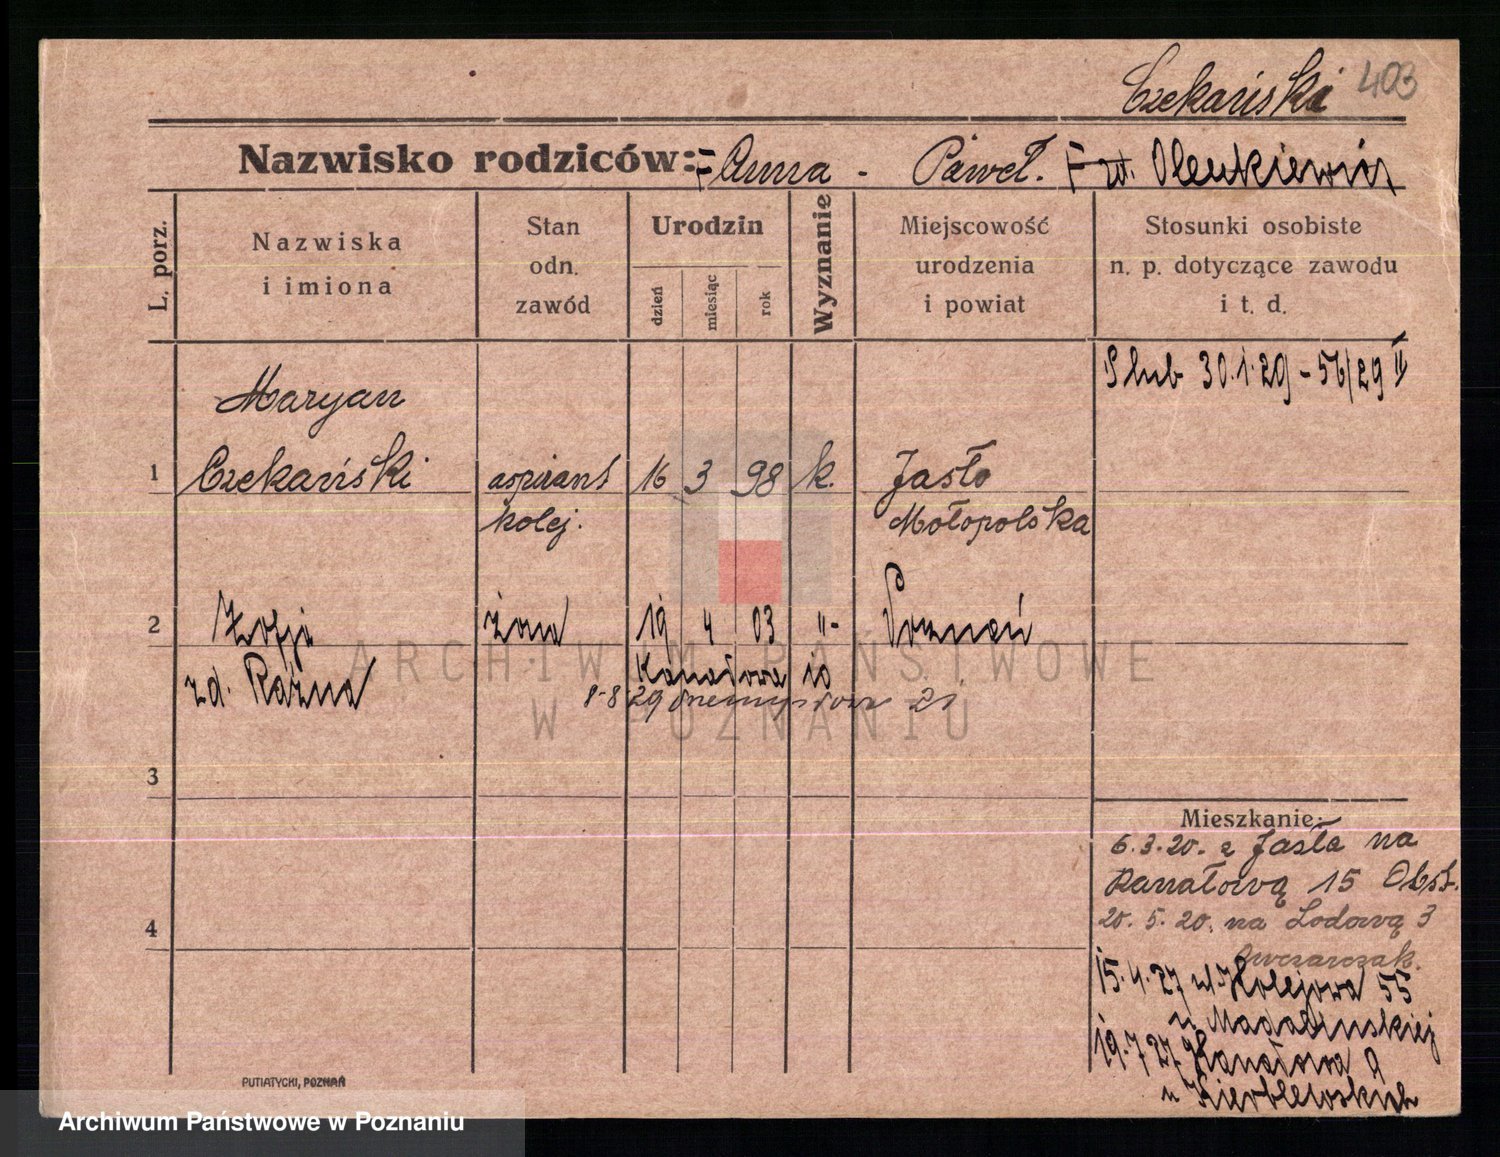 Czekański 403
Nazwisko rodziców: Anna - Paweł.
L. porz.
Nazwiska
i imiona
Stan
odn.
zawód
Urodzin
dzień
miesiąc
rok
Wyznanie
Miejscowość
urodzenia
i powiat
Stosunki osobiste
n. p. dotyczące zawodu
i t. d.
Slub 30.1.29 - 56/29 II
Maryan
1 Czekański aspirant 16 3 98 k. Jasło
kolej. Małopolska
2 Zofja żona 19 4 03 "- Poznań
zd. Raźna Kanałowa 10
8-8 29 21
3
Mieszkanie:
6.3.20. z Jasła na
Kanałową 15
4
20.5.20. na Lodową 3
Owczarczak.
15.4.27 ul. Kolejowa 55
u Madalinskiej
19.7.27 Kanałowa 9
u
PUTIATYCKI, POZNAŃ
ARCHIWUM PAŃSTWOWE
W POZNANIU
Archiwum Państwowe w Poznaniu